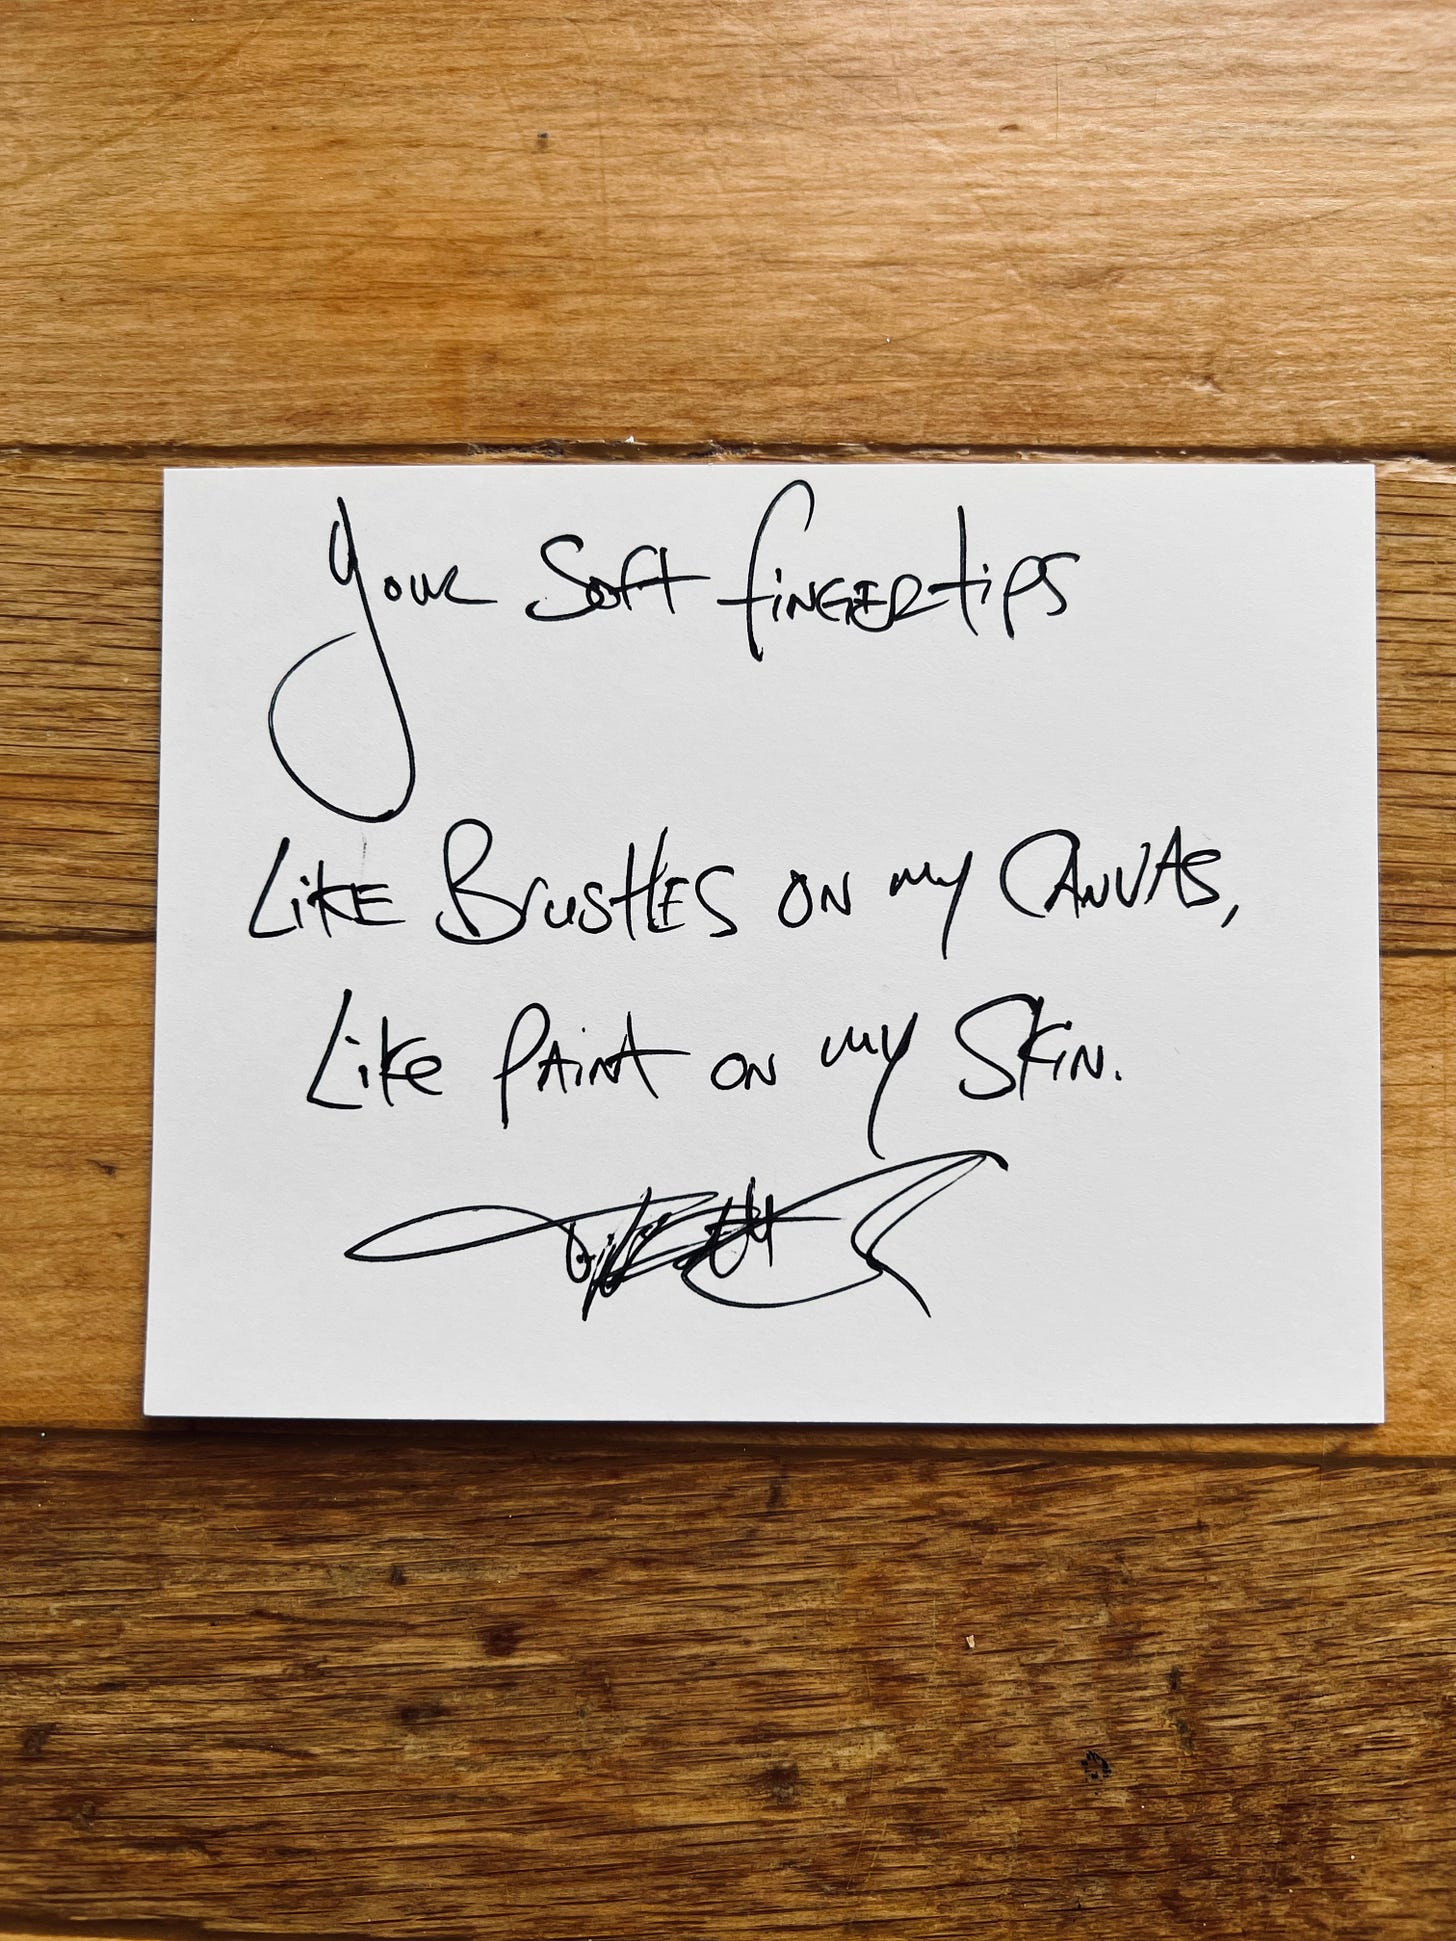 Your Soft fingertips
Like Brushes on my Canvas,
Like Paint on my Skin.